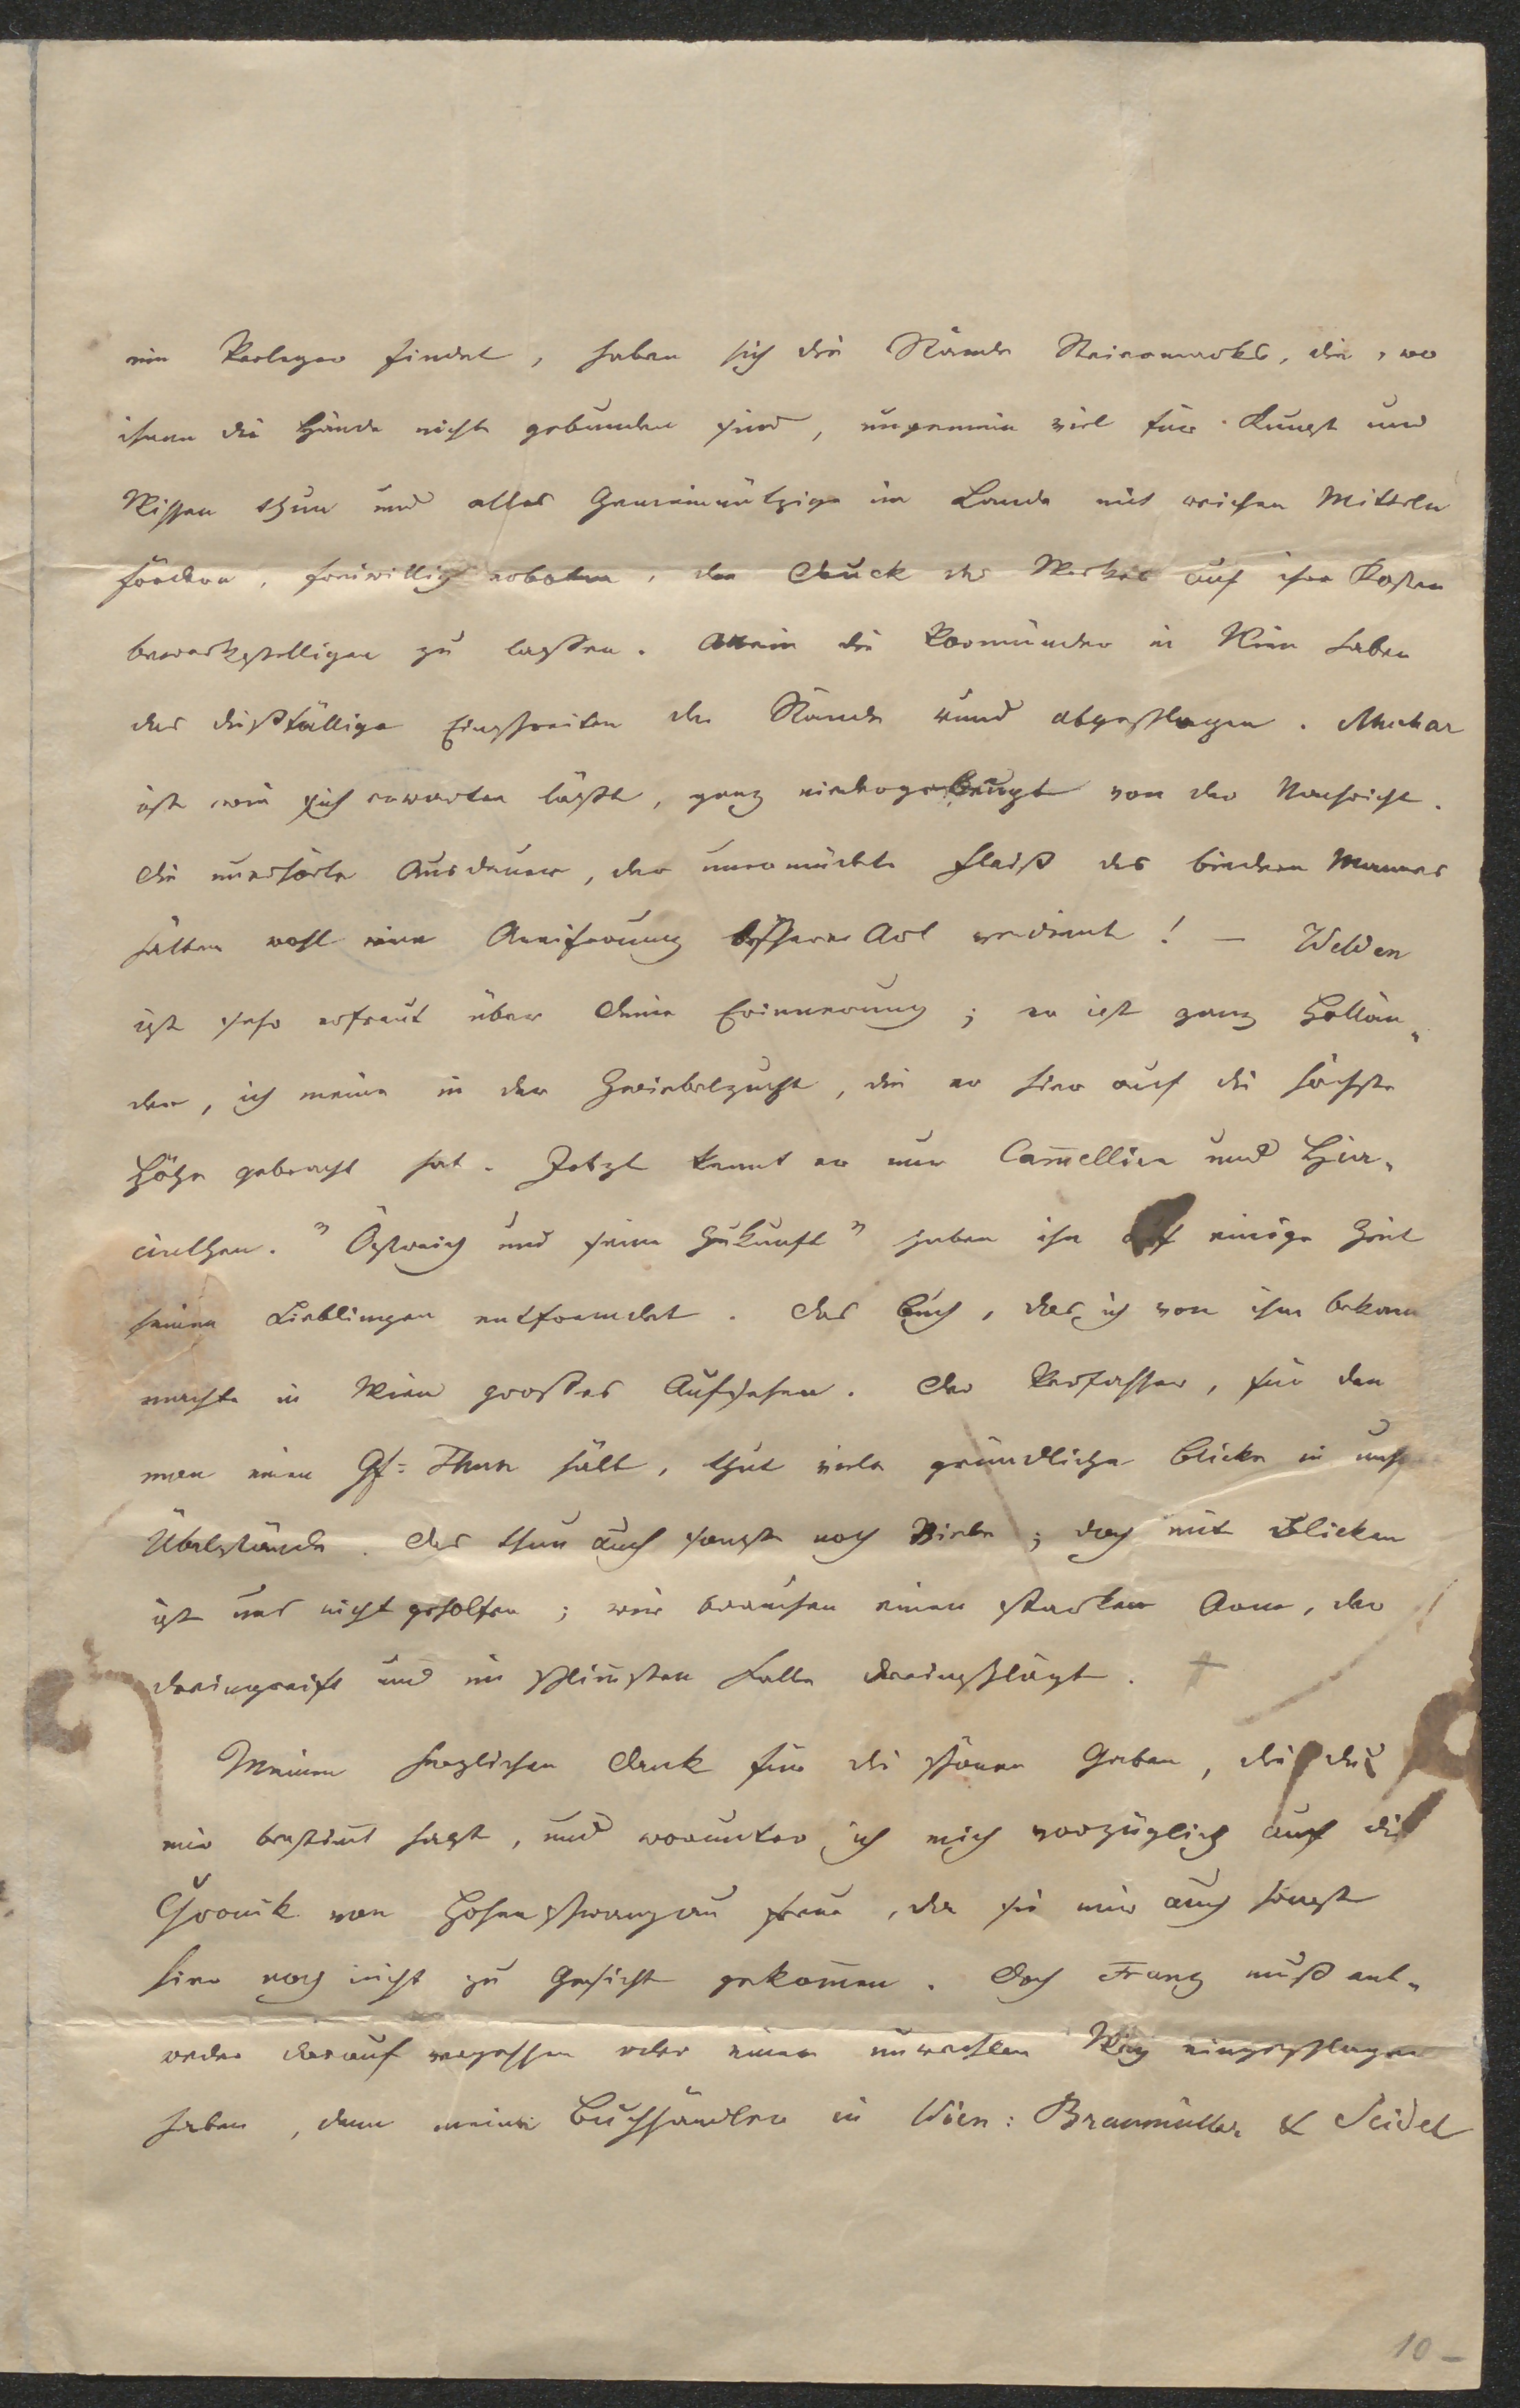 ein Verleger findet, haben sich die Stände Steiermarks, die, wo
ihnen die Hände nicht gebunden sind, ungemein viel für Kunst und
Wissen thun und alles Gemeinnützige im Lande mit reichen Mitteln
fördern, freiwillig erboten, den Druck des Werkes auf ihre Kosten
bewerkstelligen zu lassen. Allein die Vormünder in Wien haben
das dießfällige Einschreiten der Stände rund abgeschlagen. Muchar
ist wie sich erwarten läßt, ganz niedergebeugt von der Nachricht.
Die unerhörte Ausdauer, der unermüdete Fleiß des biedern Mannes
hätten wohl eine Aneiferung besserer Art verdient! — Welden
ist sehr erfreut über Deine Erinnerung; er ist ganz Hollän„
der, ich meine in der Zwiebelzucht, die er hier auf die höchste
Höhe gebracht hat. Jetzt kennt er nur Cam̄ellien und Hia„
cinthen. "Östreich und seine Zukunft" haben ihn auf einige Zeit
seinen Lieblingen entfremdet. Das Buch, das ich von ihm bekam
machte in Wien großes Aufsehen. Der Verfasser, für den
man einen Gf: Thun hält, thut viele gründliche Blicke in unsre
Übelstände. Das thun auch sonst noch Viele; doch mit Blicken
ist uns nicht geholfen; wir brauchen einen starken Arm, der
dreingreift und im schlim̄sten Falle dreinschlägt. +
Meinen herzlichen Dank für die schönen Gaben, die Du
mir bestim̄t hast, und worunter ich mich vorzüglich auf die
Chronik von Hohenschwangau freue, da sie mir auch sonst
hier noch nicht zu Gesicht gekom̄en. Doch Franz muß ent„
weder darauf vergessen oder einen unrechten Weg eingeschlagen
haben, denn meine Buchhändler in Wien: Braumüller & Seidel
10 –